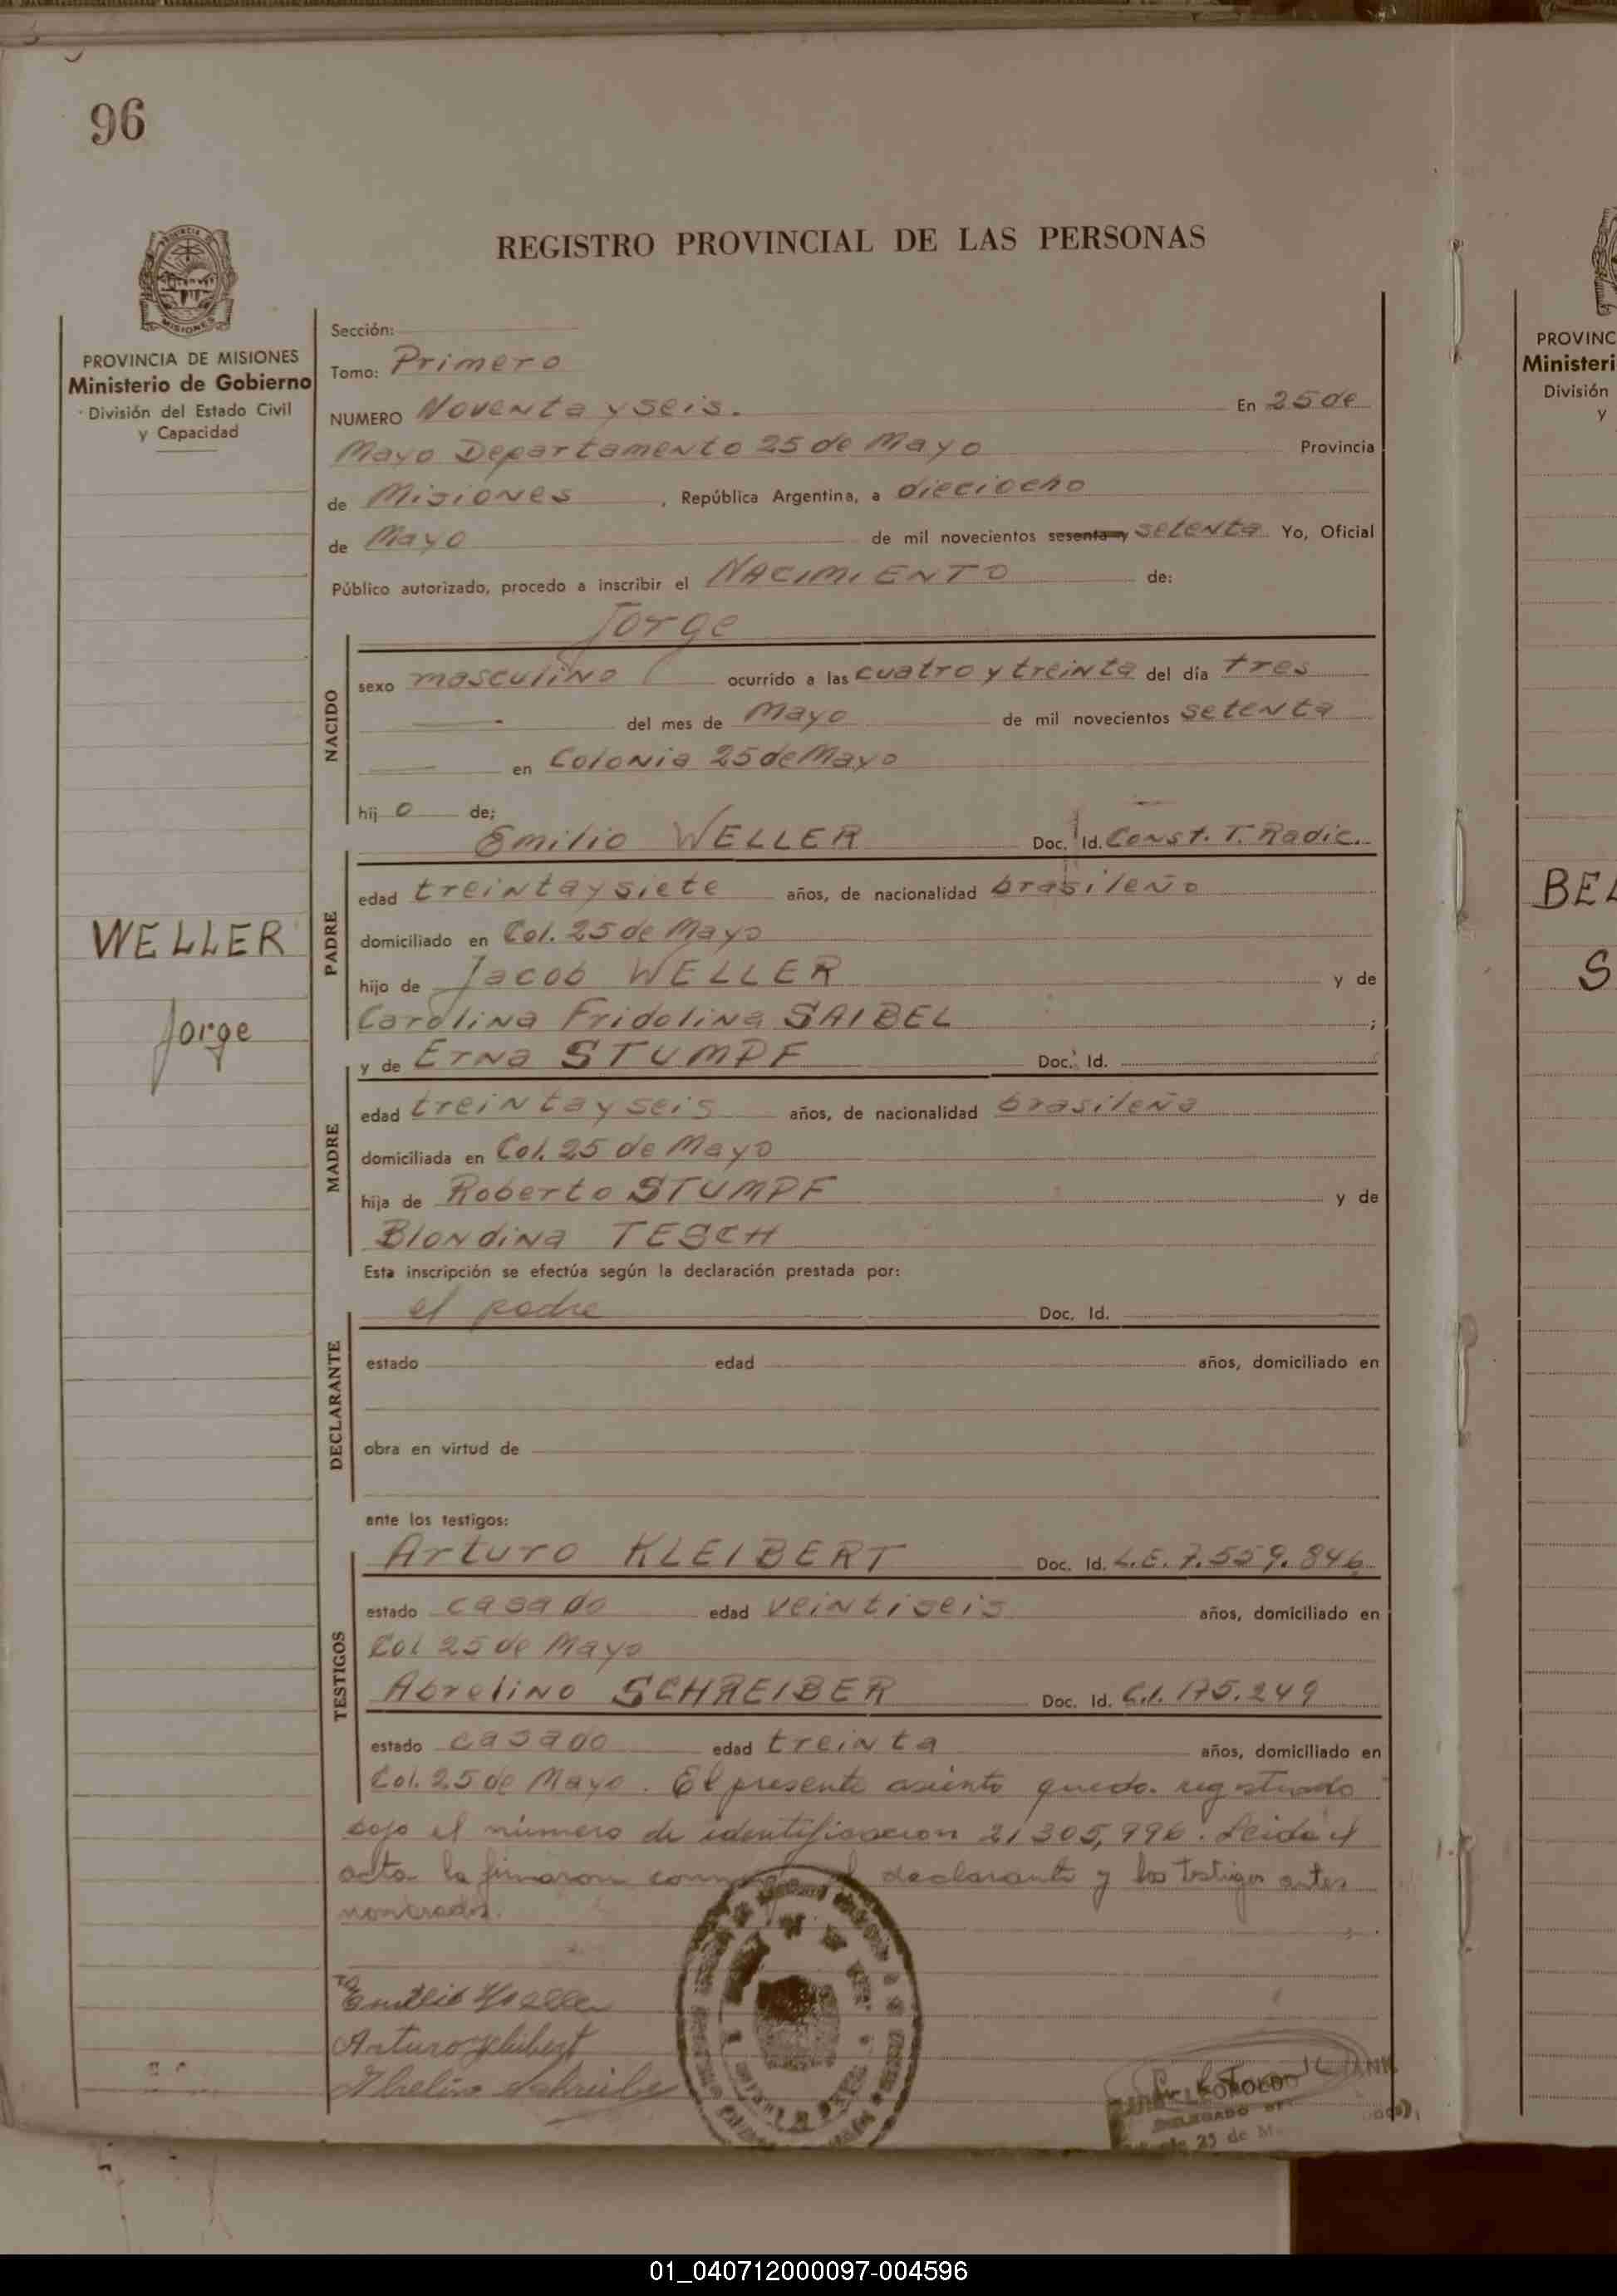 96
REGISTRO PROVINCIAL DE LAS PERSONAS
PROVINCIA DE MISIONES
Ministerio de Gobierno
División del Estado Civil
y Capacidad
Sección:
Tomo: Primero
NUMERO Noventa y seis. En 25 de
Mayo Departamento 25 de Mayo Provincia
de Misiones, República Argentina, a dieciocho
de Mayo de mil novecientos sesenta y setenta Yo, Oficial
Público autorizado, procedo a inscribir el NACIMIENTO de:
Jorge
NACIDO
sexo masculino ocurrido a las cuatro y treinta del día tres
del mes de Mayo de mil novecientos setenta
en Colonia 25 de Mayo
hij o de;
Emilio WELLER Doc. Id. Const. T. Radic.
PADRE
edad treinta y siete años, de nacionalidad brasileño
domiciliado en Col. 25 de Mayo
hijo de Jacob WELLER y de
Carolina Fridolina SAIBEL ;
WELLER
Jorge
y de Erna STUMPF Doc. Id.
MADRE
edad treinta y seis años, de nacionalidad brasileña
domiciliada en Col. 25 de Mayo
hija de Roberto STUMPF y de
Blondina TESCH
Esta inscripción se efectúa según la declaración prestada por:
el padre Doc. Id.
DECLARANTE
estado edad años, domiciliado en
obra en virtud de
ante los testigos:
Arturo KLEIBERT Doc. Id. L.E. 7.559.846
TESTIGOS
estado casado edad veintiseis años, domiciliado en
Col 25 de Mayo
Abrelino SCHREIBER Doc. Id. C.I. 175.249
estado casado edad treinta años, domiciliado en
Col. 25 de Mayo. El presente asiento queda registrado
bajo el número de identificacion 21305,996. Leida el
acta la firmaron declarante y los testigos antes
nombrados.
Emilio Weller
Arturo Kleibert
Abrelino Schreiber
LEOPOLDO
DELEGADO
25 de M
PROVINC
Ministeri
División
y
BEL
S
MISIONES
01_040712000097-004596